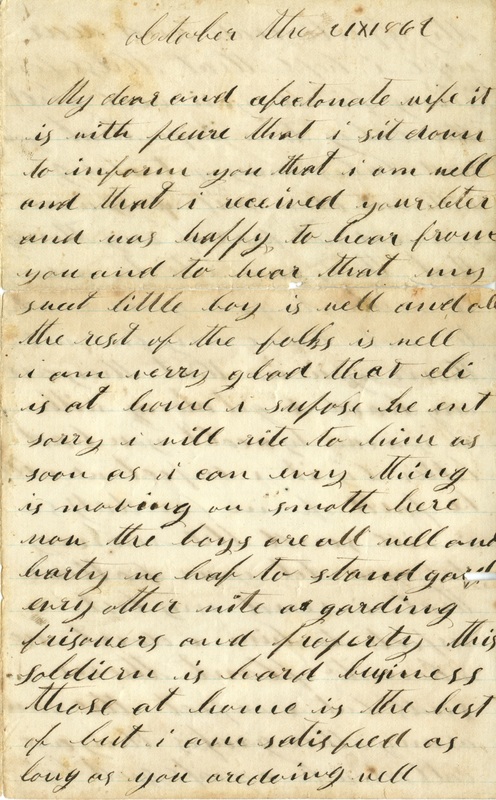 october the 21x1864
My dear and afectonate wife it
is with plesure that i sit down
to inform you that i am well
and that i received your leter
and was happy to hear from
you and to hear that my
sweet little boy is well and all
the rest of the folks is well
i am verry glad that eli
is at home i supose he ent
sorry i will rite to him as
soon as i can evry thing
is moving on smoth here
now the boys are all well and
harty we haf to stand gard
evry other nite a garding
prisoners and property this
soldiern is hard buisness
those at home is the best
of but i am satisfeed as
long as you are doing well